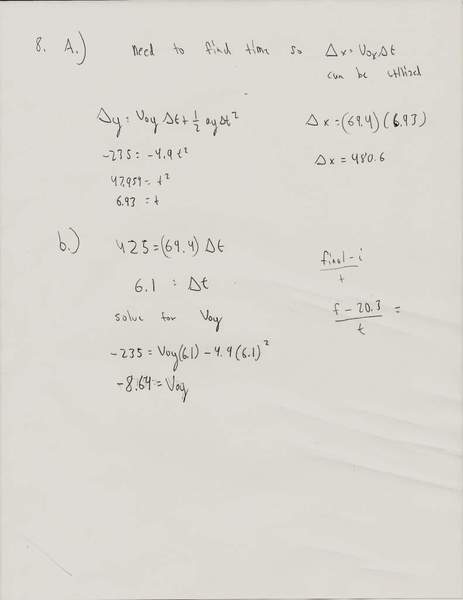 8. A.) need to find time so Δx = Vox Δt
can be utilized
Δy = Voy Δt + 1/2 ay Δt²
Δx = (69.4)(6.93)
-235 = -4.9 t²
Δx = 480.6
47.959 = t²
6.93 = t
b.) 425 = (69.4) Δt
6.1 = Δt
solve for Voy
-235 = Voy(6.1) - 4.9(6.1)²
-8.64 = Voy
final - i
t
f - 20.3 =
t